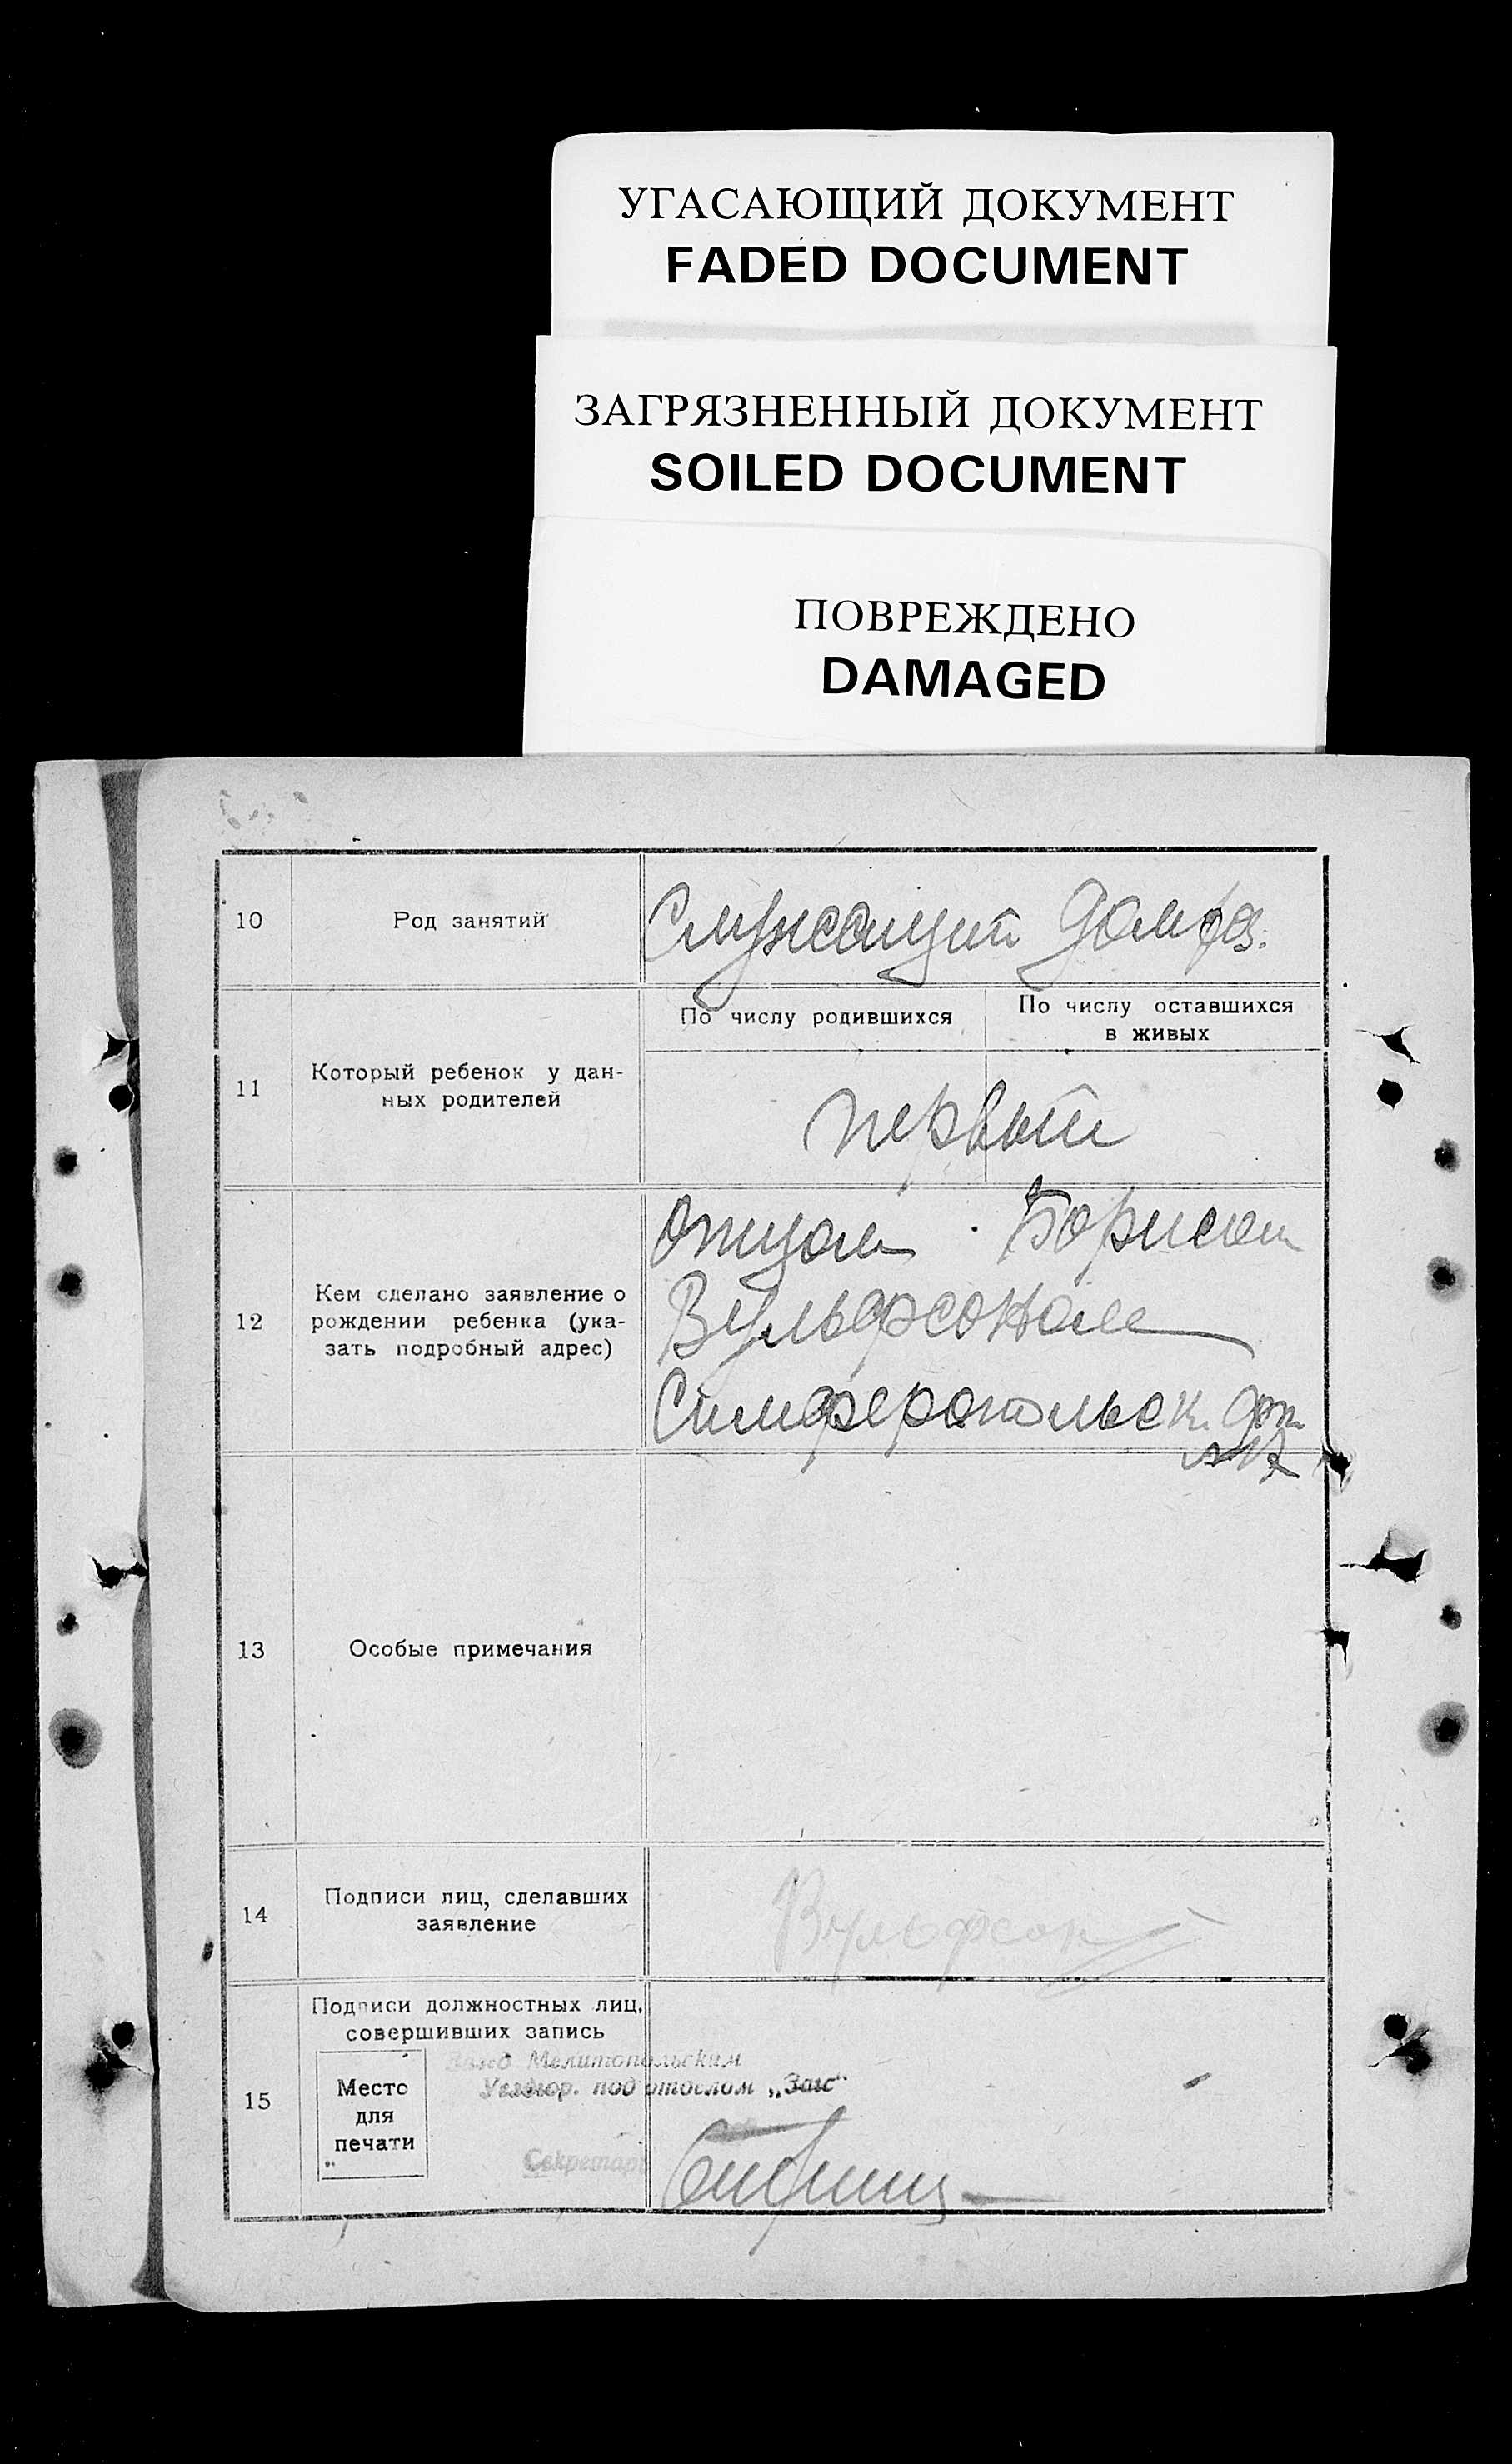 УГАСАЮЩИЙ ДОКУМЕНТ
FADED DOCUMENT
ЗАГРЯЗНЕННЫЙ ДОКУМЕНТ
SOILED DOCUMENT
ПОВРЕЖДЕНО
DAMAGED
10
Род занятий
Служащий
11
Который ребенок у дан-
ных родителей
По числу родившихся
По числу оставшихся
в живых
первый
12
Кем сделано заявление о
рождении ребенка (ука-
зать подробный адрес)
Отцом Борисом
Вульфсоном
Симферопольск.
13
Особые примечания
14
Подписи лиц, сделавших
заявление
Вульфсон
15
Подписи должностных лиц,
совершивших запись
Место
для
печати
Мелитопольским
под'отделом „Загс“
Секретарь